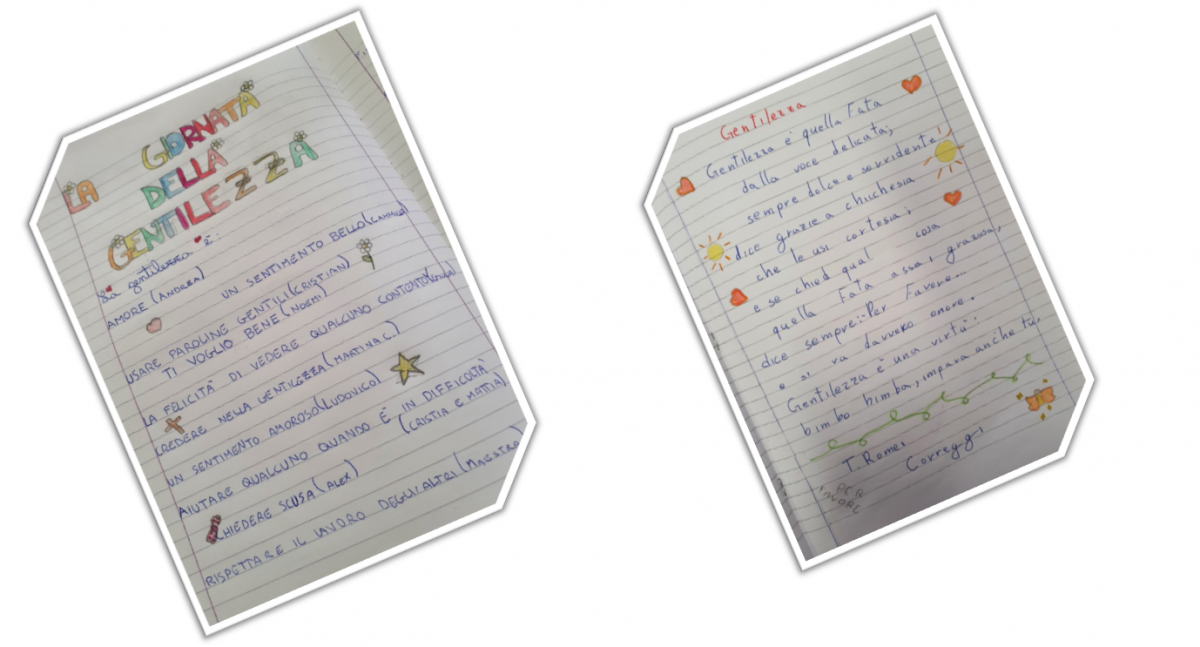 LA GIORNATA
DELLA
GENTILEZZA
La gentilezza è:
AMORE (ANDREA)
UN SENTIMENTO BELLO (CAMILLA)
USARE PAROLINE GENTILI (CRISTIAN)
TI VOGLIO BENE (NOEMI)
LA FELICITA' DI VEDERE QUALCUNO CONTENTO
CREDERE NELLA GENTILEZZA (MARTINA C.)
UN SENTIMENTO AMOROSO (LUDOVICO)
AIUTARE QUALCUNO QUANDO È IN DIFFICOLTÀ
(CRISTIA E MATTIA)
CHIEDERE SCUSA (ALEX)
RISPETTARE IL LAVORO DEGLI ALTRI (MAESTRA)
Gentilezza
Gentilezza è quella Fata
dalla voce delicata,
sempre dolce e sorridente!
dice grazie a chicchesia
che le usi cortesia;
e se chied qual cosa
quella Fata assai graziosa,
dice sempre: Per Favore...
e si va davvero onore.
Gentilezza è una virtù:
bimbo bimba, impara anche tu.
T. Romei
Correggi
PER